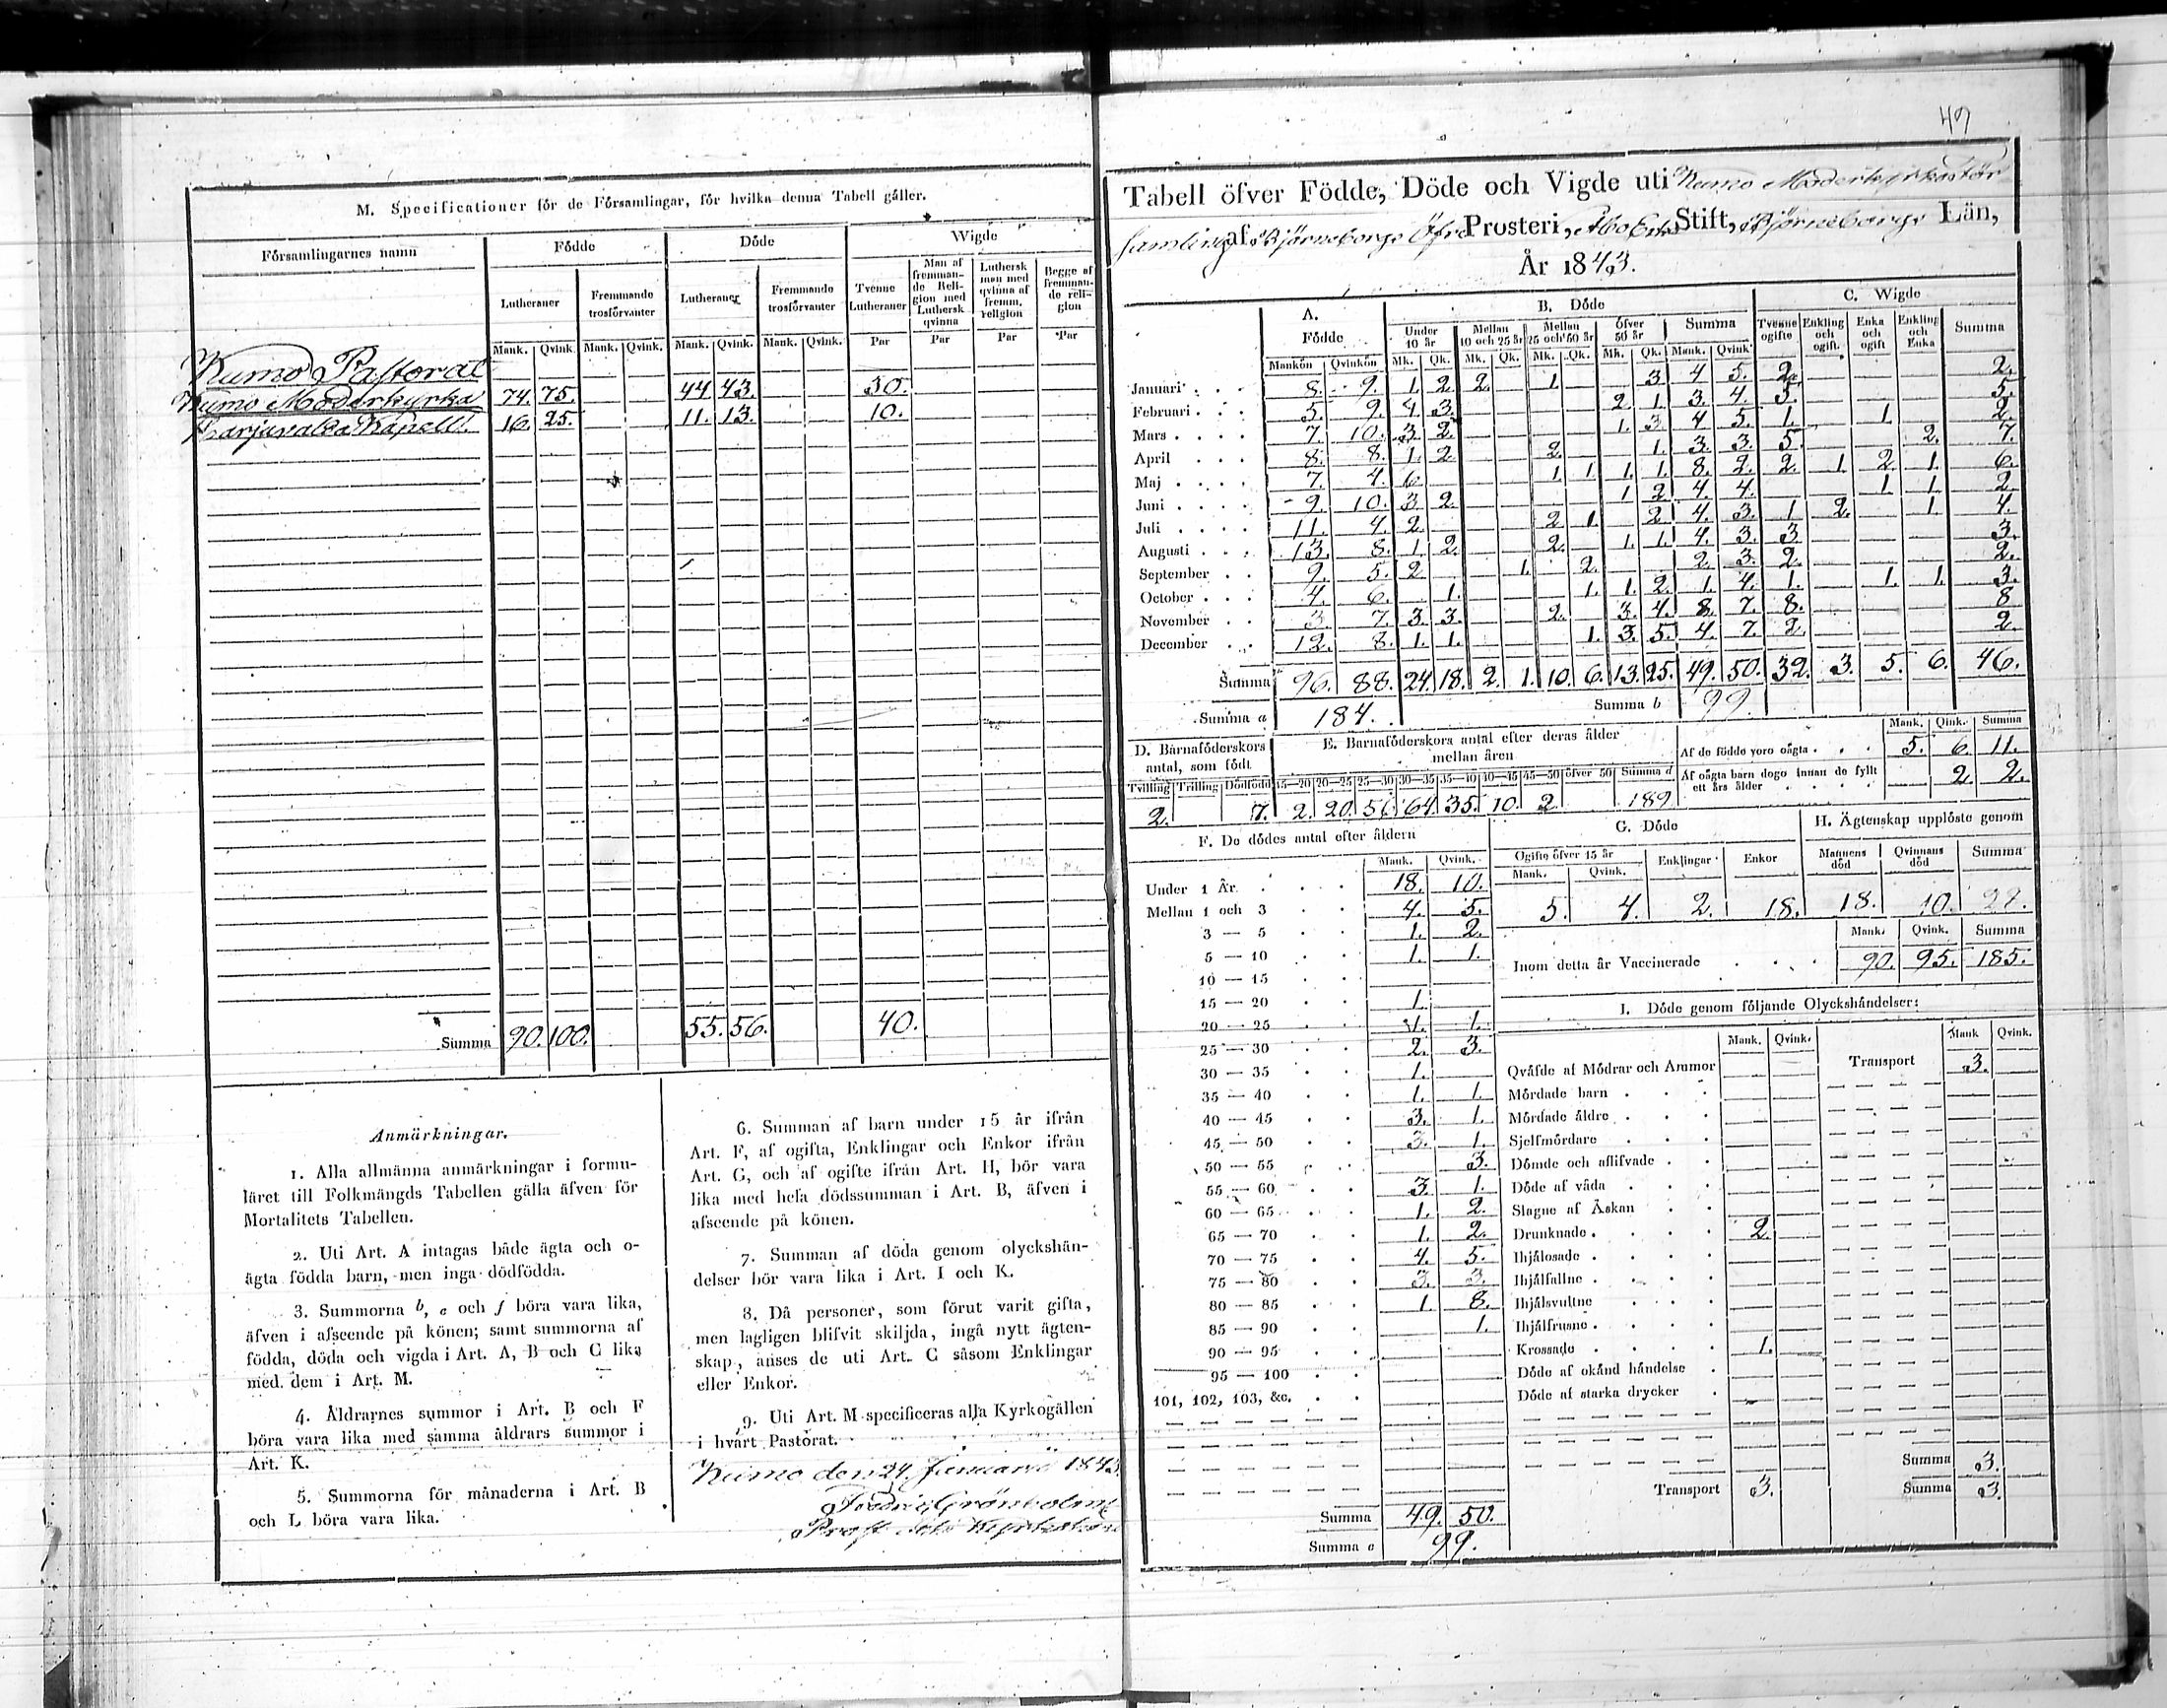 M. Specificationer för de Församlingar, för hvilka denna Tabell gäller.
Församlingarnes namn | Födde | Döde | Wigde
Lutheraner | Fremmande trosförvanter | Lutheraner | Fremmande trosförvanter | Tvenne Lutheraner | Man af fremmande Religion med Luthersk qvinna | Luthersk man med qvinna af fremm. religion | Begge af fremmande religion
Mank. | Qvink. | Mank. | Qvink. | Mank. | Qvink. | Mank. | Qvink. | Par | Par | Par | Par
Kumo Pastorat
Kumo Moderkyrka 74. 75. 44. 43. 30.
Harjavalda Kapell. 16. 25. 11. 13. 10.
Summa 90. 100. 55. 56. 40.
Anmärkningar.
1. Alla allmänna anmärkningar i formu-
läret till Folkmängds Tabellen gälla äfven för
Mortalitets Tabellen.
2. Uti Art. A intagas både ägta och o-
ägta födda barn, men inga dödfödda.
3. Summorna b, c och f böra vara lika,
äfven i afseende på könen; samt summorna af
födda, döda och vigda i Art. A, B och C lika
med dem i Art. M.
4. Åldrarnes summor i Art. B och F
böra vara lika med samma åldrars summor i
Art. K.
5. Summorna för månaderna i Art. B
och L böra vara lika.
6. Summan af barn under 15 år ifrån
Art. F, af ogifta, Enklingar och Enkor ifrån
Art. G, och af ogifte ifrån Art. H, bör vara
lika med hela dödssumman i Art. B, äfven i
afseende på könen.
7. Summan af döda genom olyckshän-
delser bör vara lika i Art. I och K.
8. Då personer, som förut varit gifta,
men lagligen blifvit skiljda, ingå nytt ägten-
skap, anses de uti Art. C såsom Enklingar
eller Enkor.
9. Uti Art. M specificeras alla Kyrkogällen
i hvart Pastorat.
Kumo den 24 Januarii 1843.
Fredric Grönholm
49
Tabell öfver Födde, Döde och Vigde uti Kumo Moderkyrkoför
samling af Björneborgs Öfre Prosteri, Åbo Erke Stift, Björneborgs Län,
År 1843.
A. Födde | B. Döde | C. Wigde
Under 10 år | Mellan 10 och 25 år | Mellan 25 och 50 år | öfver 50 år | Summa | Tvenne ogifte | Enkling och ogift. | Enka och ogift | Enkling och Enka | Summa
Mankön | Qvinkön | Mk. | Qk. | Mk. | Qk. | Mk. | Qk. | Mk. | Qk. | Mank. | Qvink.
Januari 8. 9. 1. 2. 2. 1. 3. 4. 5. 2. 2.
Februari 5. 9. 4. 3. 2. 1. 3. 4. 5. 5.
Mars 7. 10. 3. 2. 1. 3. 4. 5. 1. 1. 2.
April 8. 8. 1. 2. 2. 1. 3. 3. 5. 2. 7.
Maj 7. 4. 6. 1. 1. 1. 1. 8. 2. 2. 1. 2. 1. 6.
Juni 9. 10. 3. 2. 1. 2. 4. 4. 1. 1. 2.
Juli 11. 4. 2. 2. 1. 2. 4. 3. 1. 2. 1. 4.
Augusti 13. 8. 1. 2. 2. 1. 1. 4. 3. 3. 3.
September 9. 5. 2. 1. 2. 2. 3. 2. 2.
October 4. 6. 1. 1. 1. 2. 1. 4. 1. 1. 1. 3.
November 3. 7. 3. 3. 2. 3. 4. 8. 7. 8. 8
December 12. 8. 1. 1. 1. 3. 5. 4. 7. 2. 2.
Summa 96. 88. 24. 18. 2. 1. 10. 6. 13. 25. 49. 50. 32. 3. 5. 6. 46.
Summa a 184. Summa b 99.
D. Barnaföderskors antal, som födt
Tvilling | Trilling | Dödfödd
2. 7.
E. Barnaföderskors antal efter deras ålder mellan åren
15—20 | 20—25 | 25—30 | 30—35 | 35—40 | 40—45 | 45—50 | öfver 50 | Summa d
2. 20. 56. 64. 35. 10. 2. 189
Mank. | Qink. | Summa
Af de födde voro oägta . . . 5. 6. 11.
Af oägta barn dogo innan de fyllt ett års ålder . . . 2. 2.
F. De dödes antal efter åldern
Mank. | Qvink.
Under 1 År 18. 10.
Mellan 1 och 3 4. 5.
3 — 5 1. 2.
5 — 10 1. 1.
10 — 15
15 — 20 1.
20 — 25 1. 1.
25 — 30 2. 3.
30 — 35 1.
35 — 40 1. 1.
40 — 45 3. 1.
45 — 50 3. 1.
50 — 55 3.
55 — 60 3. 1.
60 — 65 1. 2.
65 — 70 1. 2.
70 — 75 4. 5.
75 — 80 3. 3.
80 — 85 1. 8.
85 — 90 1.
90 — 95
95 — 100
101, 102, 103, &c.
Summa 49. 50.
Summa c 99.
G. Döde
Ogifte öfver 15 år | Enklingar | Enkor
Mank. | Qvink.
5. 4. 2. 18.
H. Ägtenskap upplöste genom
Mannens död | Qvinnans död | Summa
18. 10. 28.
Mank. | Qvink. | Summa
Inom detta år Vaccinerade . . . 90. 95. 185.
I. Döde genom följande Olyckshändelser:
Mank. | Qvink. | Mank | Qvink.
Qväfde af Mödrar och Ammor
Transport 3.
Mördade barn
Mördade äldre
Sjelfmördare
Dömde och aflifvade
Döde af våda
Slagne af Åskan
Drunknade 2.
Ihjälosade
Ihjälfallne
Ihjälsvultne
Ihjälfrusne
Krossade 1.
Döde af okänd händelse
Döde af starka drycker
Summa 3.
Transport 3. Summa 3.